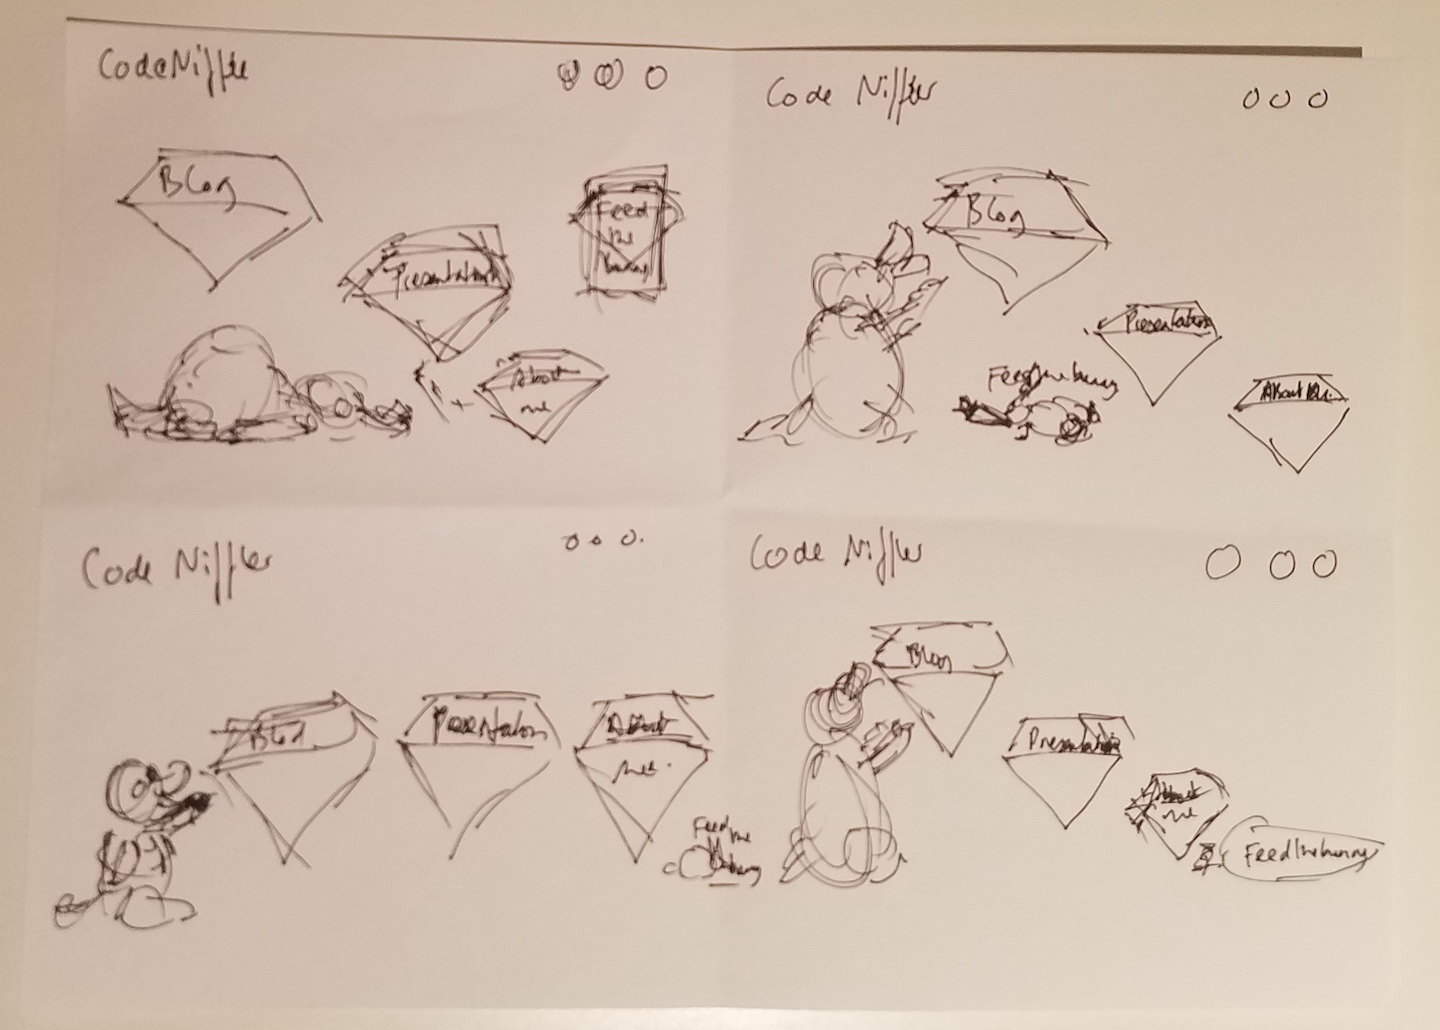 CodeNiffler
Blog
Presentations
Feed
the
bunny
About
me
Code Niffler
Blog
Presentations
Feed the bunny
About Me.
Code Niffler
Blog
Presentations
About
me.
Feed the
bunny
Code Niffler
Blog
Presentations
About
me
Feed the bunny